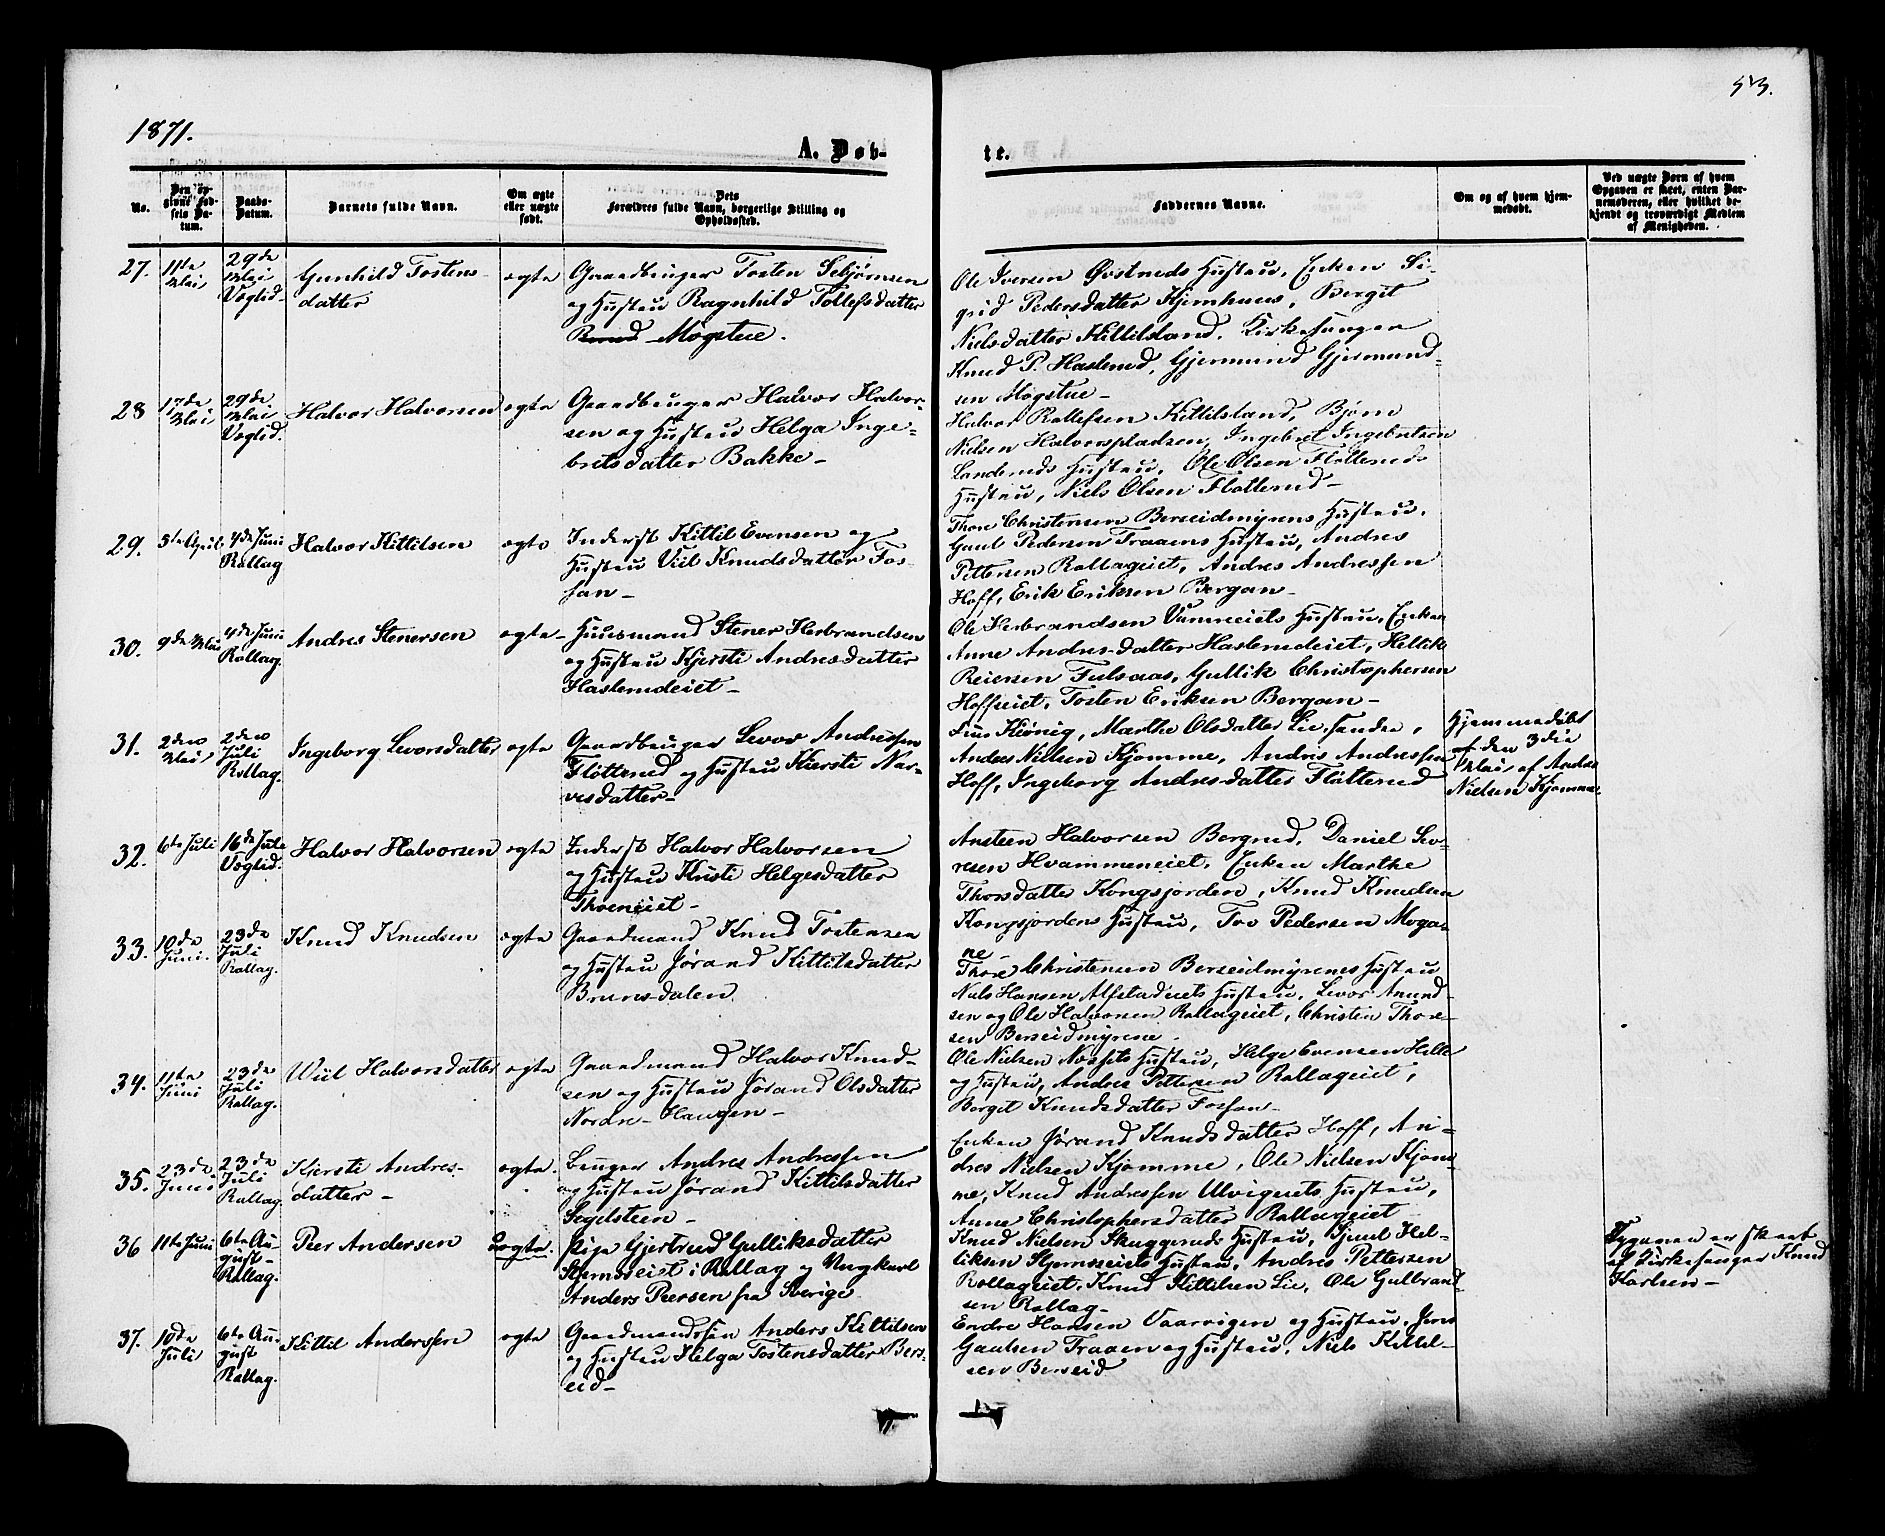 53.
1871.
A. Døb-
te.
No.
Den op-
givne Fød-
sels Da-
tum.
Daabs-
Datum.
Barnets fulde Navn.
Om ægte
eller uægte
født.
Dets
Forældres fulde Navn, borgerlige Stilling og
Opholdssted.
Faddernes Navne.
Om og af hvem hjem-
medøbt.
Ved uægte Børn af hvem
Opgaven er skeet, enten Bar-
nemoderen, eller hvilket be-
kjendt og troværdigt Medlem
af Menigheden.
27.
11te
Mai
29de
Mai
Væglid
Gunhild Tostens-
datter
ægte
Gaardbruger Tosten Sebjørnsen
og Hustru Ragnhild Tollefsdatter
Møgstue.
Ole Iversen Østreds Hustru, Enken Si-
grid Pedersdatter Kjemhuus, Bergit
Nielsdatter Kittilsland, Kirkesanger
Knud P. Haslerud, Gjermund Gjermund-
sen Møgstue
28
17de
Mai
29de
Mai
Væglid.
Halvor Halvorsen
ægte
Gaardbruger Halvor Halvor-
sen og Hustru Helga Inge-
britsdatter Bakke
Halvor Rollefsen Kittilsland, Bjørn
Nielsen Halvorspladsen, Ingebret Ingebretsen
Landeruds Hustru, Ole Olsen Fløtteruds
Hustru, Niels Olsen Fløtterud
29.
3te April
4de Juni
Rollag
Halvor Kittilsen
ægte
Inderst Kittil Evensen og
Hustru Viil Knudsdatter Fos-
san
Thore Christensen Berseidmyrens Hustru,
Gaut Pedersen Traaens Hustru, Andres
Pettersen Rollageiet, Andres Andressen
Hoff, Erik Eriksen Bergan
30.
9de Mai
4de Juni
Rollag
Andres Stenersen
ægte
Huusmand Stener Herbrandsen
og Hustru Kjersti Andresdatter
Haslerudeiet
Ole Herbrandsen Vanneiets Hustru, Enken
Anne Andresdatter Haslerudeiet, Hellik
Reiersen Fulsaas, Gullik Christophersen
Hoffseiet, Tosten Eriksen Bergan
31.
2den
Mai
2den
Juli
Rollag.
Ingeborg Levorsdatter
ægte
Gaardbruger Levor Andressen
Fløtterud og Hustru Kjersti Nar-
vesdatter
Marthe Olsdatter
Andres Nielsen Kjomme, Andris Andressen
Hoff, Ingeborg Andresdatter Fløtterud
Hjemmedøbt
af den 3die
Mai af Andres
Nielsen Kjomme
32.
6te Juli
16de Juli
Væglid.
Halvor Halvorsen
ægte
Inderst Halvor Halvorsen
og Hustru Kristi Helgesdatter
Thoeneiet
Ansteen Halvorsen Bergrud, Daniel Sev-
resen Hvammeneiet, Enken Marthe
Thorsdatter Kongsjorden, Knud Knudsen
Kongsjordens Hustru, Tov Pedersen Mogar-
ne
33.
10de
Juni.
23de
Juli
Rollag.
Knud Knudsen
ægte
Gaardmand Knud Tostensen
og Hustru Jørand Kittilsdatter
Brunsdalen
Thore Christensen Berseidmyrenes Hustru
Niels Hansen Alfstadeiets Hustru, Levor Amund-
sen og Ole Halvorsen Rollageiet, Christen Thore-
sen Berseidmyrene.
34.
11te
Juni
23de
Juli
Rollag.
Wiil Halvorsdatter
ægte
Gaardmand Halvor Knud-
sen og Hustru Jørand Olsdatter
Nordre-Haugen
Ole Nielsen Næssets Hustru, Helge Evensen Helle
og Hustru, Andres Pettersen Rollageiet,
Bergit Knudsdatter Fossan
35.
23de
Juni
23de
Juli
Rollag
Kjersti Andres-
datter
ægte.
Bruger Andres Andressen
og Hustru Jørand Kittilsdatter
Segelsteen
Enken Jørand Knudsdatter Hoff, An-
dres Nielsen Kjomme, Ole Nielsen Kjom-
me, Knud Andressen Ulvigeiets Hustru,
Anne Christophersdatter Rollageiet
36
11te Juni
6te Au-
gust
Rollag.
Peer Andersen
uægte.
Pige Gjertrud Gulliksdatter
Stjernseiet i Rollag og Ungkarl
Anders Peersen fra Sverige
Knud Nielsen Skuggeruds Hustru, Gjuul Hel-
liksen Stjernseiets Hustru, Andres Pettersen
Rollageiet, Knud Kittilsen Lie, Ole Gulbrand-
sen Rollag
Opgaven er skeet
af Kirkesanger Knud
Karlsen
37.
10de
Juli
6te Au-
gust
Rollag.
Kittil Andersen
ægte
Gaardmandssøn Anders Kittilsen
og Hustru Helga Tostensdatter Bers-
eid
Endre Hansen Vaarvigen og Hustru, Jens
Gautsen Traaen og Hustru, Niels Kittil-
sen Berseid